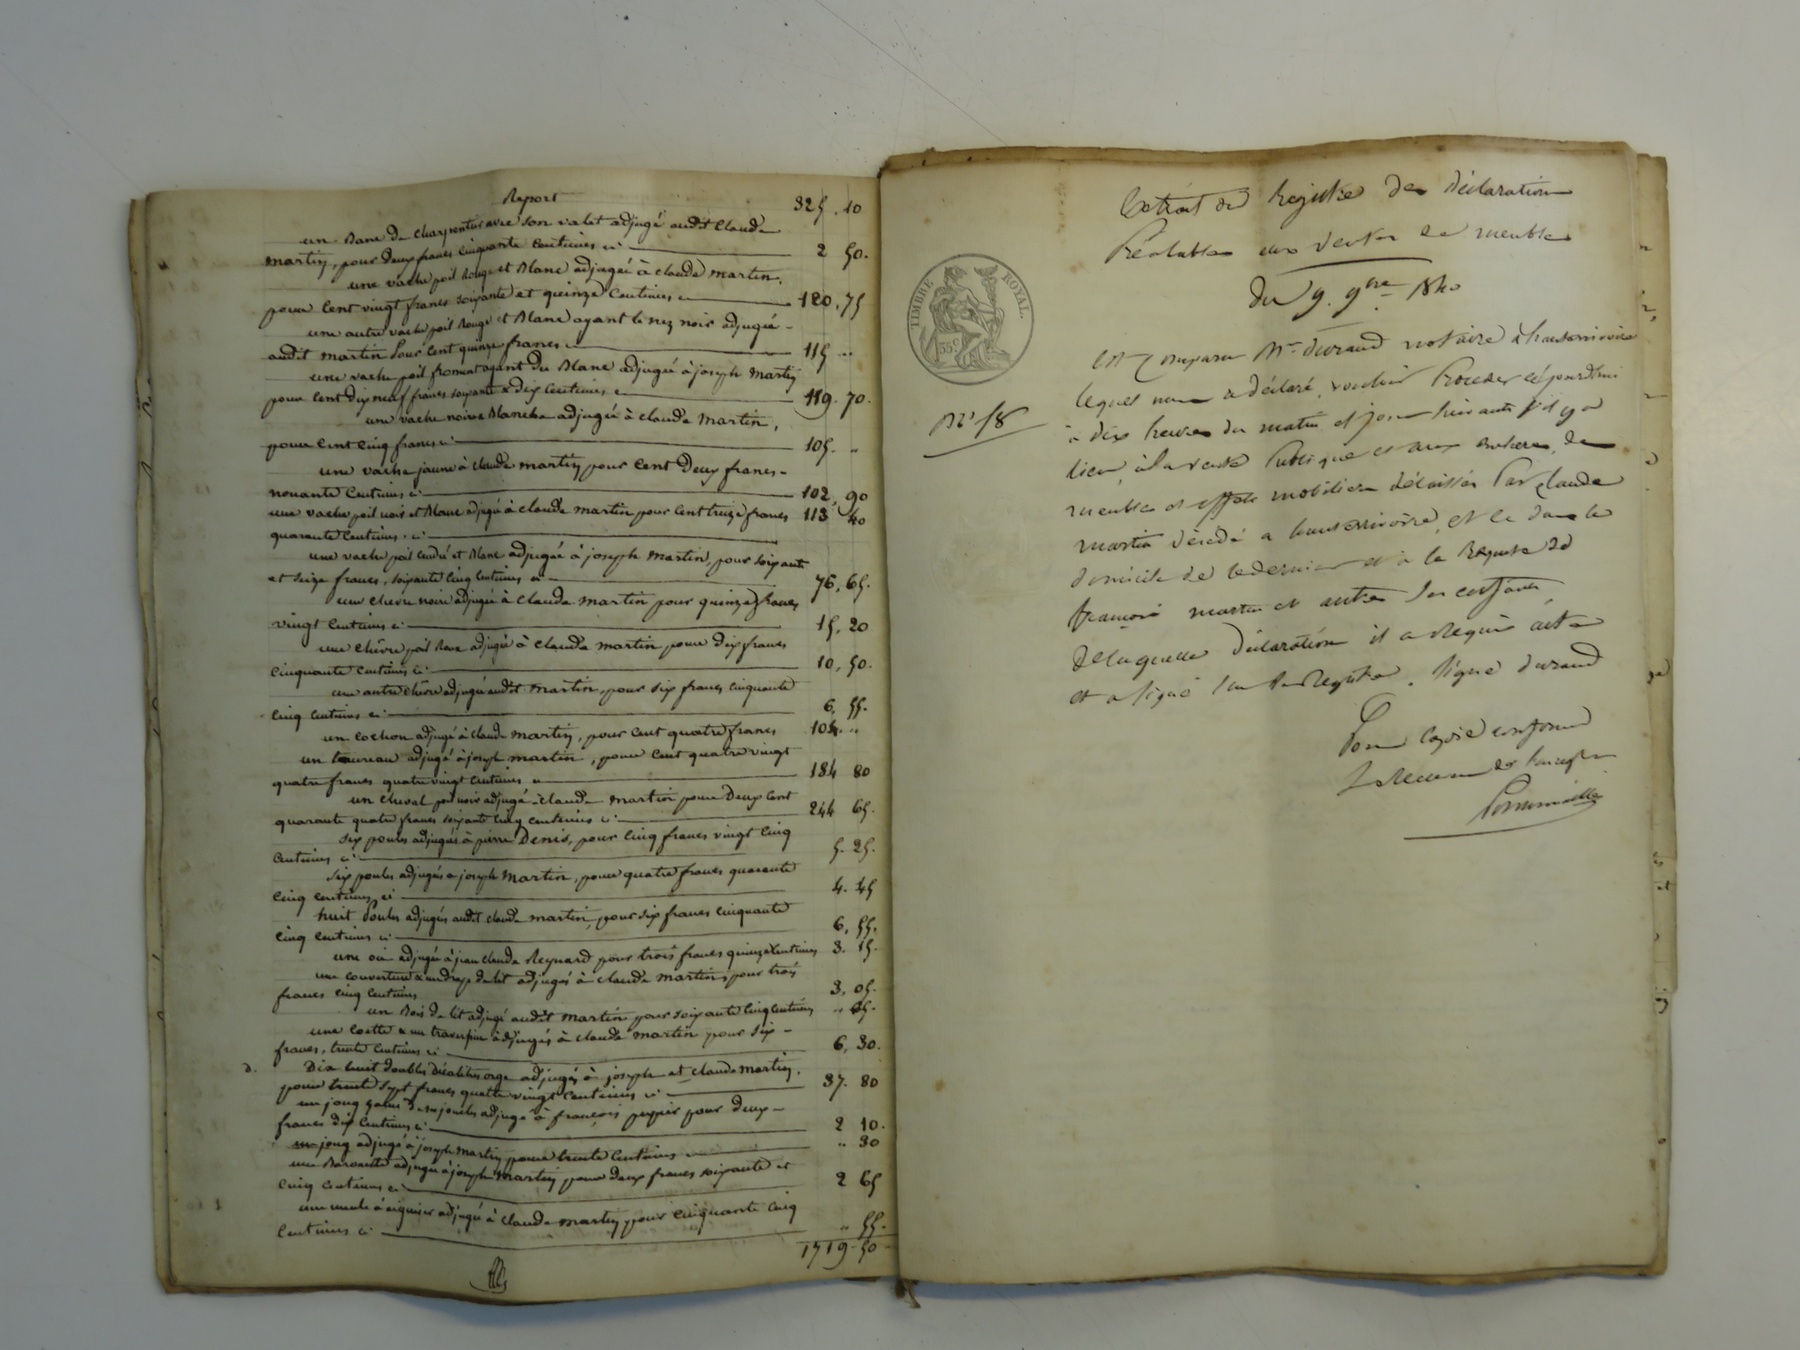 Report 325. 10
un Banc de charpentier avec son valet adjugé audit Claude
martin, pour deux francs cinquante centimes ci 2 50.
une vache poil Rouge et Blanc adjugée à claude martin.
pour cent vingt francs soixante et quinze centimes ci 120. 75
une autre vache poil Rouge et Blanc ayant le nez noir adjugée
audit martin pour cent quinze francs ci 115 ..
une vache poil froment ayant du Blanc adjugée à joseph martin
pour cent dix neuf francs soixante & dix centimes ci 119. 70.
une vache noire & Blanche adjugée à claude martin,
pour cent cinq francs ci 105. ..
une vache jaune à claude martin pour cent deux francs
nonante centimes ci 102, 90
une vache poil noir et Blanc adjugé à claude martin pour cent treize francs 113 40
quarante centimes. ci
une vache poil cendré et Blanc adjugée à joseph martin, pour soixante
et seize francs, soixante cinq centimes ci 76, 65.
une chèvre noire adjugée à claude martin pour quinze francs
vingt centimes ci 15, 20
une chèvre poil adjugée à claude martin pour dix francs
cinquante centimes ci 10, 50.
une autre chèvre adjugée audit martin, pour six francs cinquante
cinq centimes ci 6, 55.
un cochon adjugé à claude martin, pour cent quatre francs 104. ..
un taureau adjugé à joseph martin, pour cent quatre vingt
quatre francs quatre vingt centimes ci 184 80
un cheval poil noir adjugé à claude martin pour Deux cent
quarante quatre francs soixante cinq centimes ci 244 65.
six poules adjugées à pierre Denis, pour cinq francs vingt cinq
centimes ci 5. 25.
six poules adjugées à joseph martin, pour quatre francs quarante
cinq centimes ci 4. 45
huit poules adjugées audit claude martin, pour six francs cinquante
cinq centimes ci 6, 55.
une oie adjugée à jean claude Reynard pour trois francs quinze centimes 3. 15.
une couverture & un drap de lit adjugés à claude martin, pour trois
francs cinq centimes 3, 05.
un Bois de lit adjugé audit martin pour soixante cinq centimes .. 65.
une coette & un traversin adjugés à claude martin pour six
francs, trente centimes ci 6, 30.
Dix huit doubles décalitres orge adjugés à joseph et claude martin,
pour trente sept francs quatre vingt centimes ci 37. 80
un joug adjugé à françois pour deux
francs dix centimes ci 2 10.
un joug adjugé à joseph martin pour trente centimes .. 30
une adjugée à joseph martin pour deux francs soixante et
cinq centimes ci 2 65
une meule à aiguiser adjugée à claude martin pour cinquante cinq
centimes ci .. 55.
1719. 50
Extrait du Registre des déclarations
Préalables aux ventes de meubles
du 9. 9bre 1840
TIMBRE ROYAL.
35c
N° 58
Est Comparu Me durand notaire à hauterivoire
lequel nous a déclaré vouloir Procéder cejourdhui
à dix heures du matin et jours suivants s'il y a
lieu, à la vente Publique et aux enchères de
meubles et effets mobiliers délaissés Par Claude
martin décédé a hauterivoire, et ce dans le
domicile de ce dernier et à la Requête de
françois martin et autres ses enfants,
De laquelle déclaration il a Requis acte
et a signé sur le Registre. signé durand
Pour copie conforme
Le Receveur de